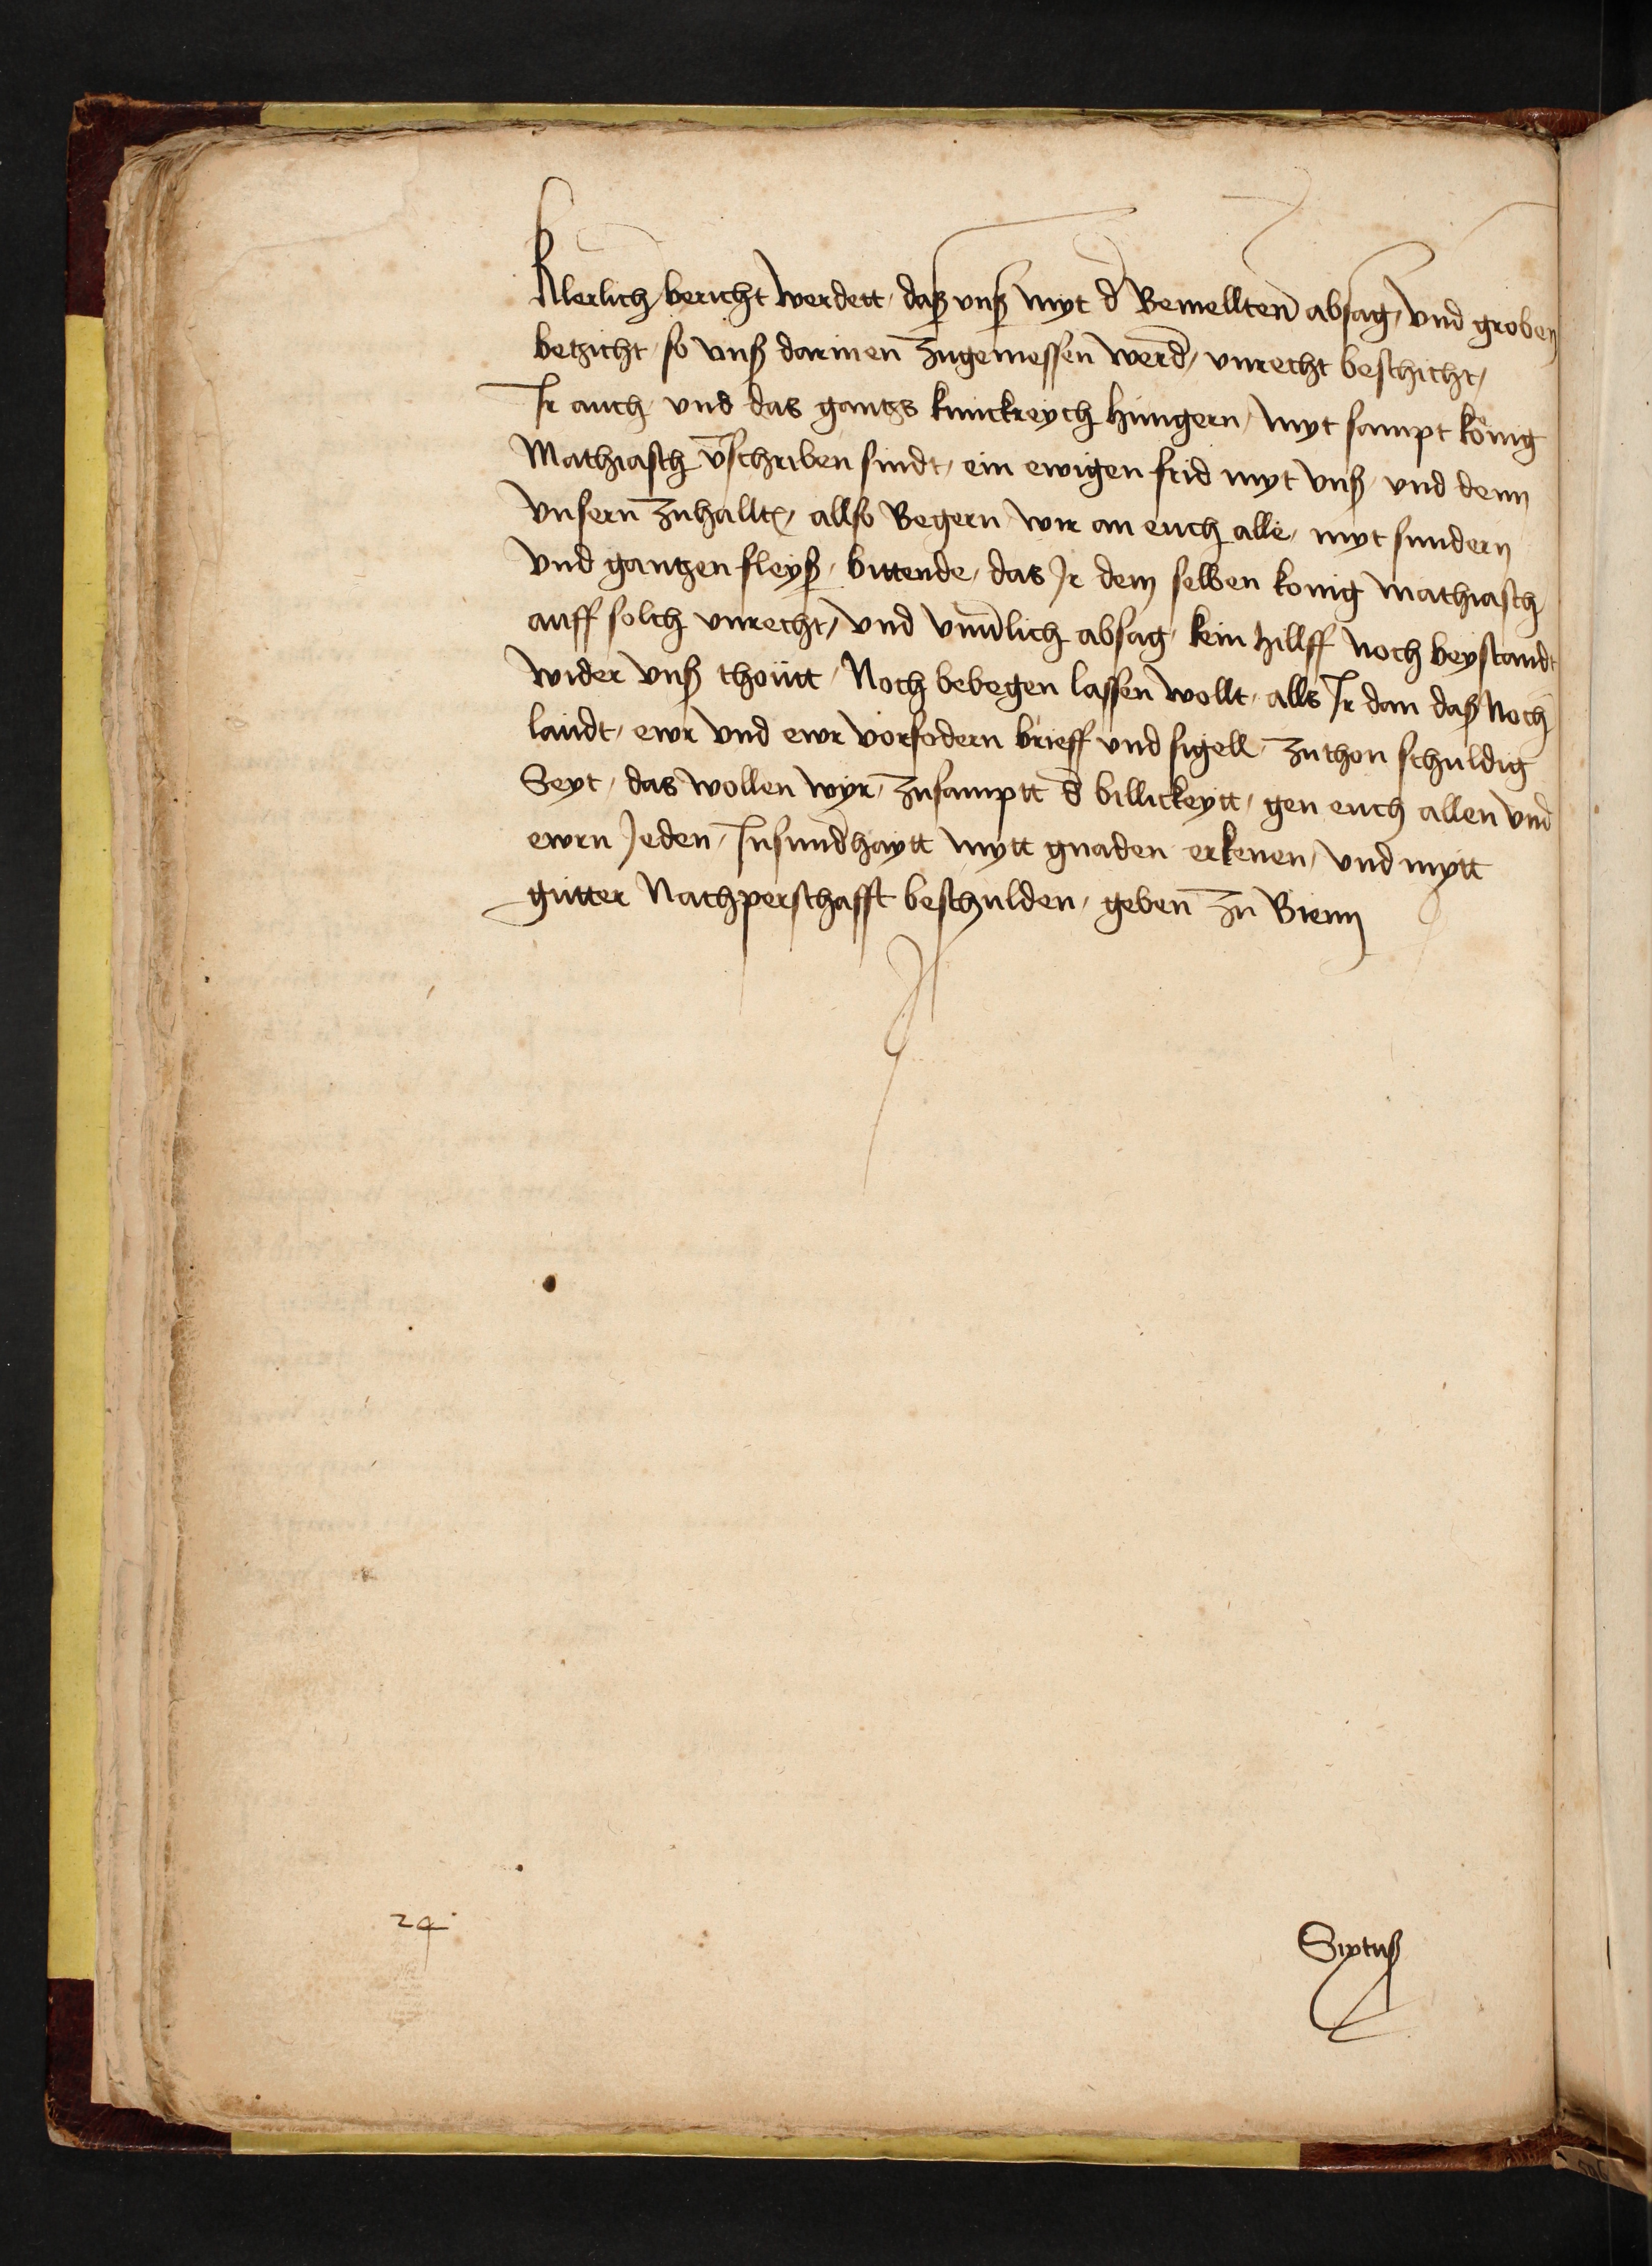 klerlich bericht werdett, daß vnß myt d̄ Bemelltenn̄ absag, vnd groben
betzicht, so vnß darinen̄ zugemessen werd̄, vnrecht beschicht,
Ir auch, vnd das gantzs kunickreych hungern, myt sampt könig
Mathiasch v̄schriben sindt, ein ewigen frid myt vnß, vnd denn
vnsern̄ zuhallt, allso Begern wir an euch alle, myt sundern
vnd gantzen fleyß, bittende, das Ir dem selben konig Mathiasch
auff solch vnrecht, vnd absag, kein hillff noch beystandt
wider vnß thoütt, Noch bebegen lassen wollt, alls Ir dan daß Noch
laudt, ewr vnd ewr vorfodern brieff vnd sigell, zuthon schuldig
Seyt, das wollen wyr, zusamptt d̄ billickeytt, gen euch allen vnd
ewrn Jeden, Insund̄haytt mytt gnaden erkenen, vnd mytt
gutter Nachperschafft beschulden, geben̄ zu Bienn
24
Sixtuß